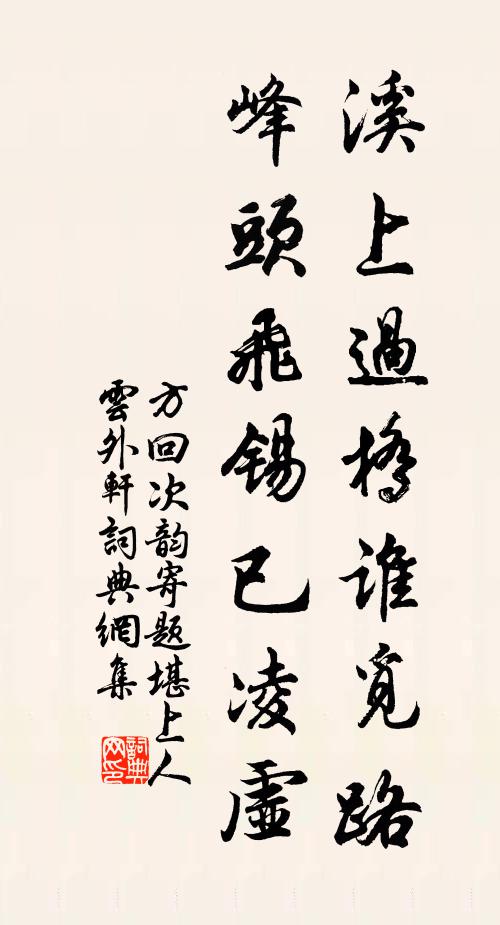 溪上過橋誰覓路
峰頭飛錫已凌虛
方回次韵寄題堪上人
雲外軒詞典網集
詞典網印